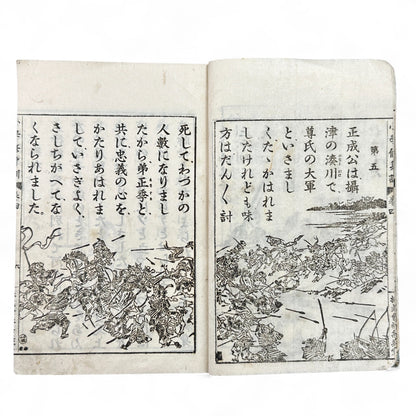 第五
正成公は攝
津の湊川で
尊氏の大軍
といさまし
くたゝかはれま
したけれども味
方はだん〴〵討
死して、わづかの
人數になりまし
たから弟正季と、
共に忠義の心を
かたりあはれま
していさぎよく、
さしちがへてな
くなられました